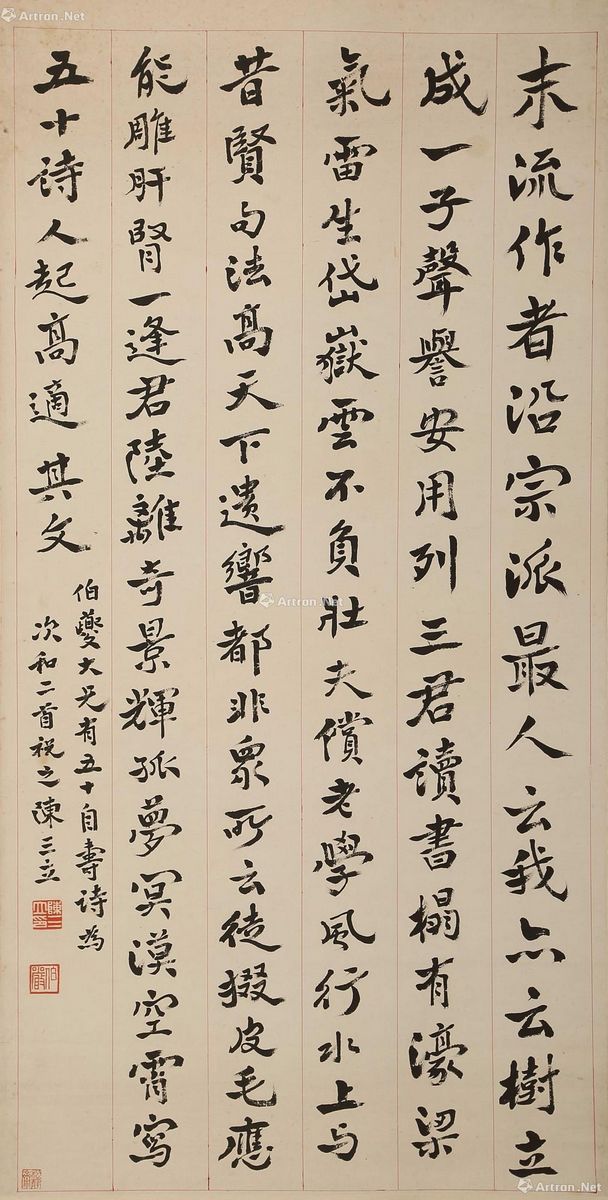 末流作者沿宗派最人云我亦云樹立
成一子聲譽安用列三君讀書榻有濠梁
氣雷生岱嶽雲不負壯夫償老學風行水上与
昔賢句法高天下遺響都非衆所云徒掇皮毛應
能雕肝腎一逢君陸離奇景輝孤夢冥漠空霄寫
五十詩人起高適其文
伯夔大兄有五十自壽诗為
次和二首祝之陳三立
陳三立印
伯嚴
Artron.Net
Artron.Net
Artron.Net
Artron.Net
Artron.Net